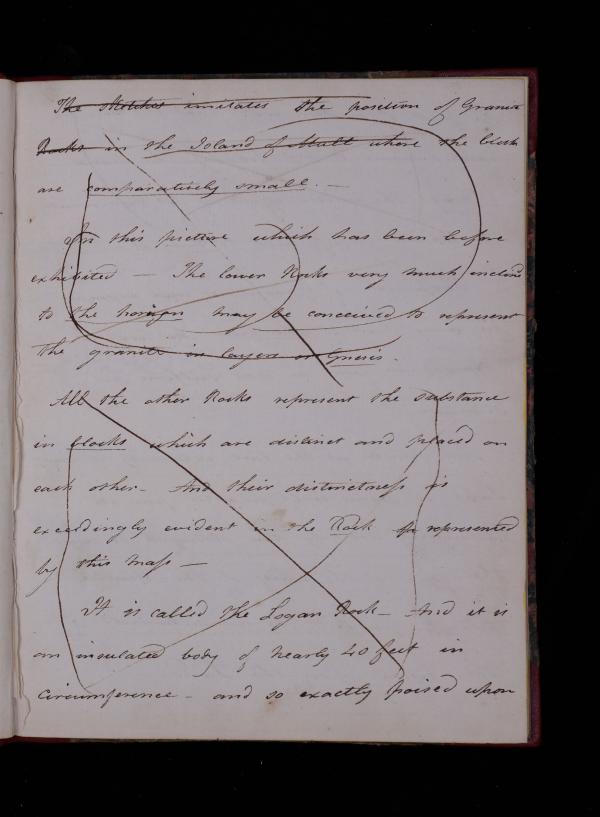 The Sketches imitates the position of Granite
Rocks in the Island of Mull where the blocks
are comparatively small. —
In this picture which has been before
exhibited — The lower Rocks very much inclined
to the horizon may be conceived to represent
the granite in layers or Gneis.
All the other Rocks represent the substance
in blocks which are distinct and placed on
each other - And their distinctness is
exceedingly evident in the Rock represented
by this mass —
It is called the Logan Rock - And it is
an insulated body of nearly 40 feet in
circumference - and so exactly poised upon